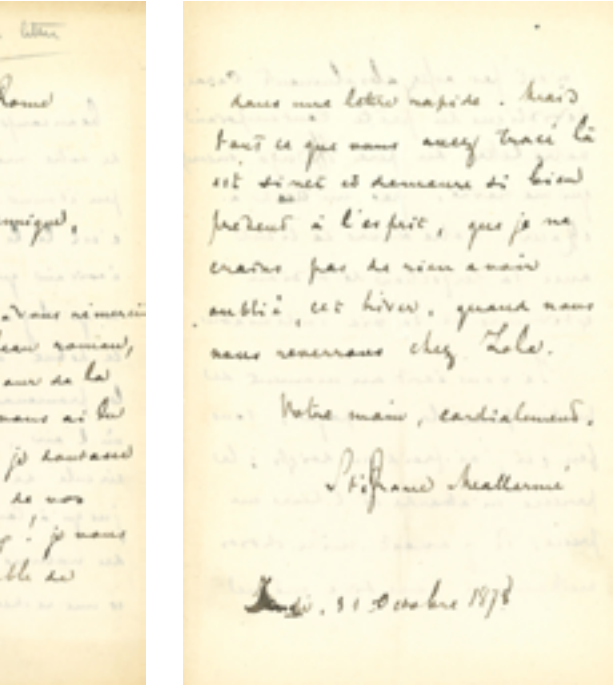 letter
Rome
remercié
roman,
de la
ai lu
je
de vos
je vous
de
dans une lettre rapide. Mais
tout ce que vous avez tracé là
est si net et demeure si bien
présent à l'esprit, que je ne
crains pas de rien avoir
oublié, cet hiver, quand nous
nous reverrons chez Zola.
Votre main, cordialement.
Stéphane Mallarmé
Jeudi, 31 Octobre 1878